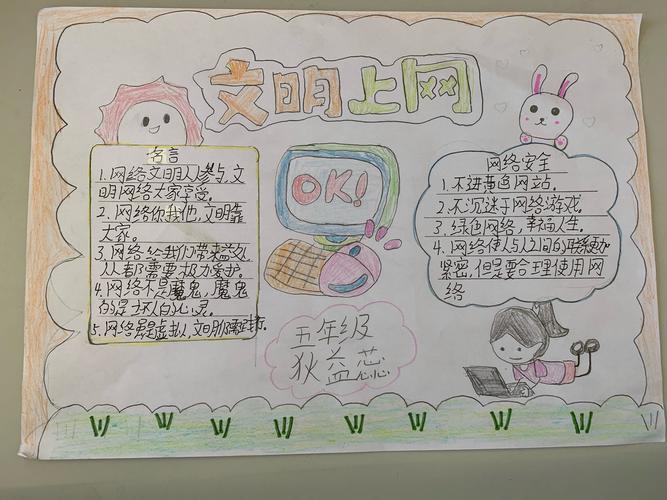 文明上网
名言
1. 网络文明人人参与,文
明网络大家享受。
2. 网络你我他,文明靠
大家。
3. 网络给我们带来益处,
人人都需要极力爱护。
4. 网络不是魔鬼,魔鬼
的是坏人的心灵。
5. 网络是虚拟,文明
OK!
五年级
狄益蕊
网络安全
1. 不进黄色网站。
2. 不沉迷于网络游戏。
3. 绿色网络,幸福人生。
4. 网络使人与人之间的联系更加
紧密,但是要合理使用网
络